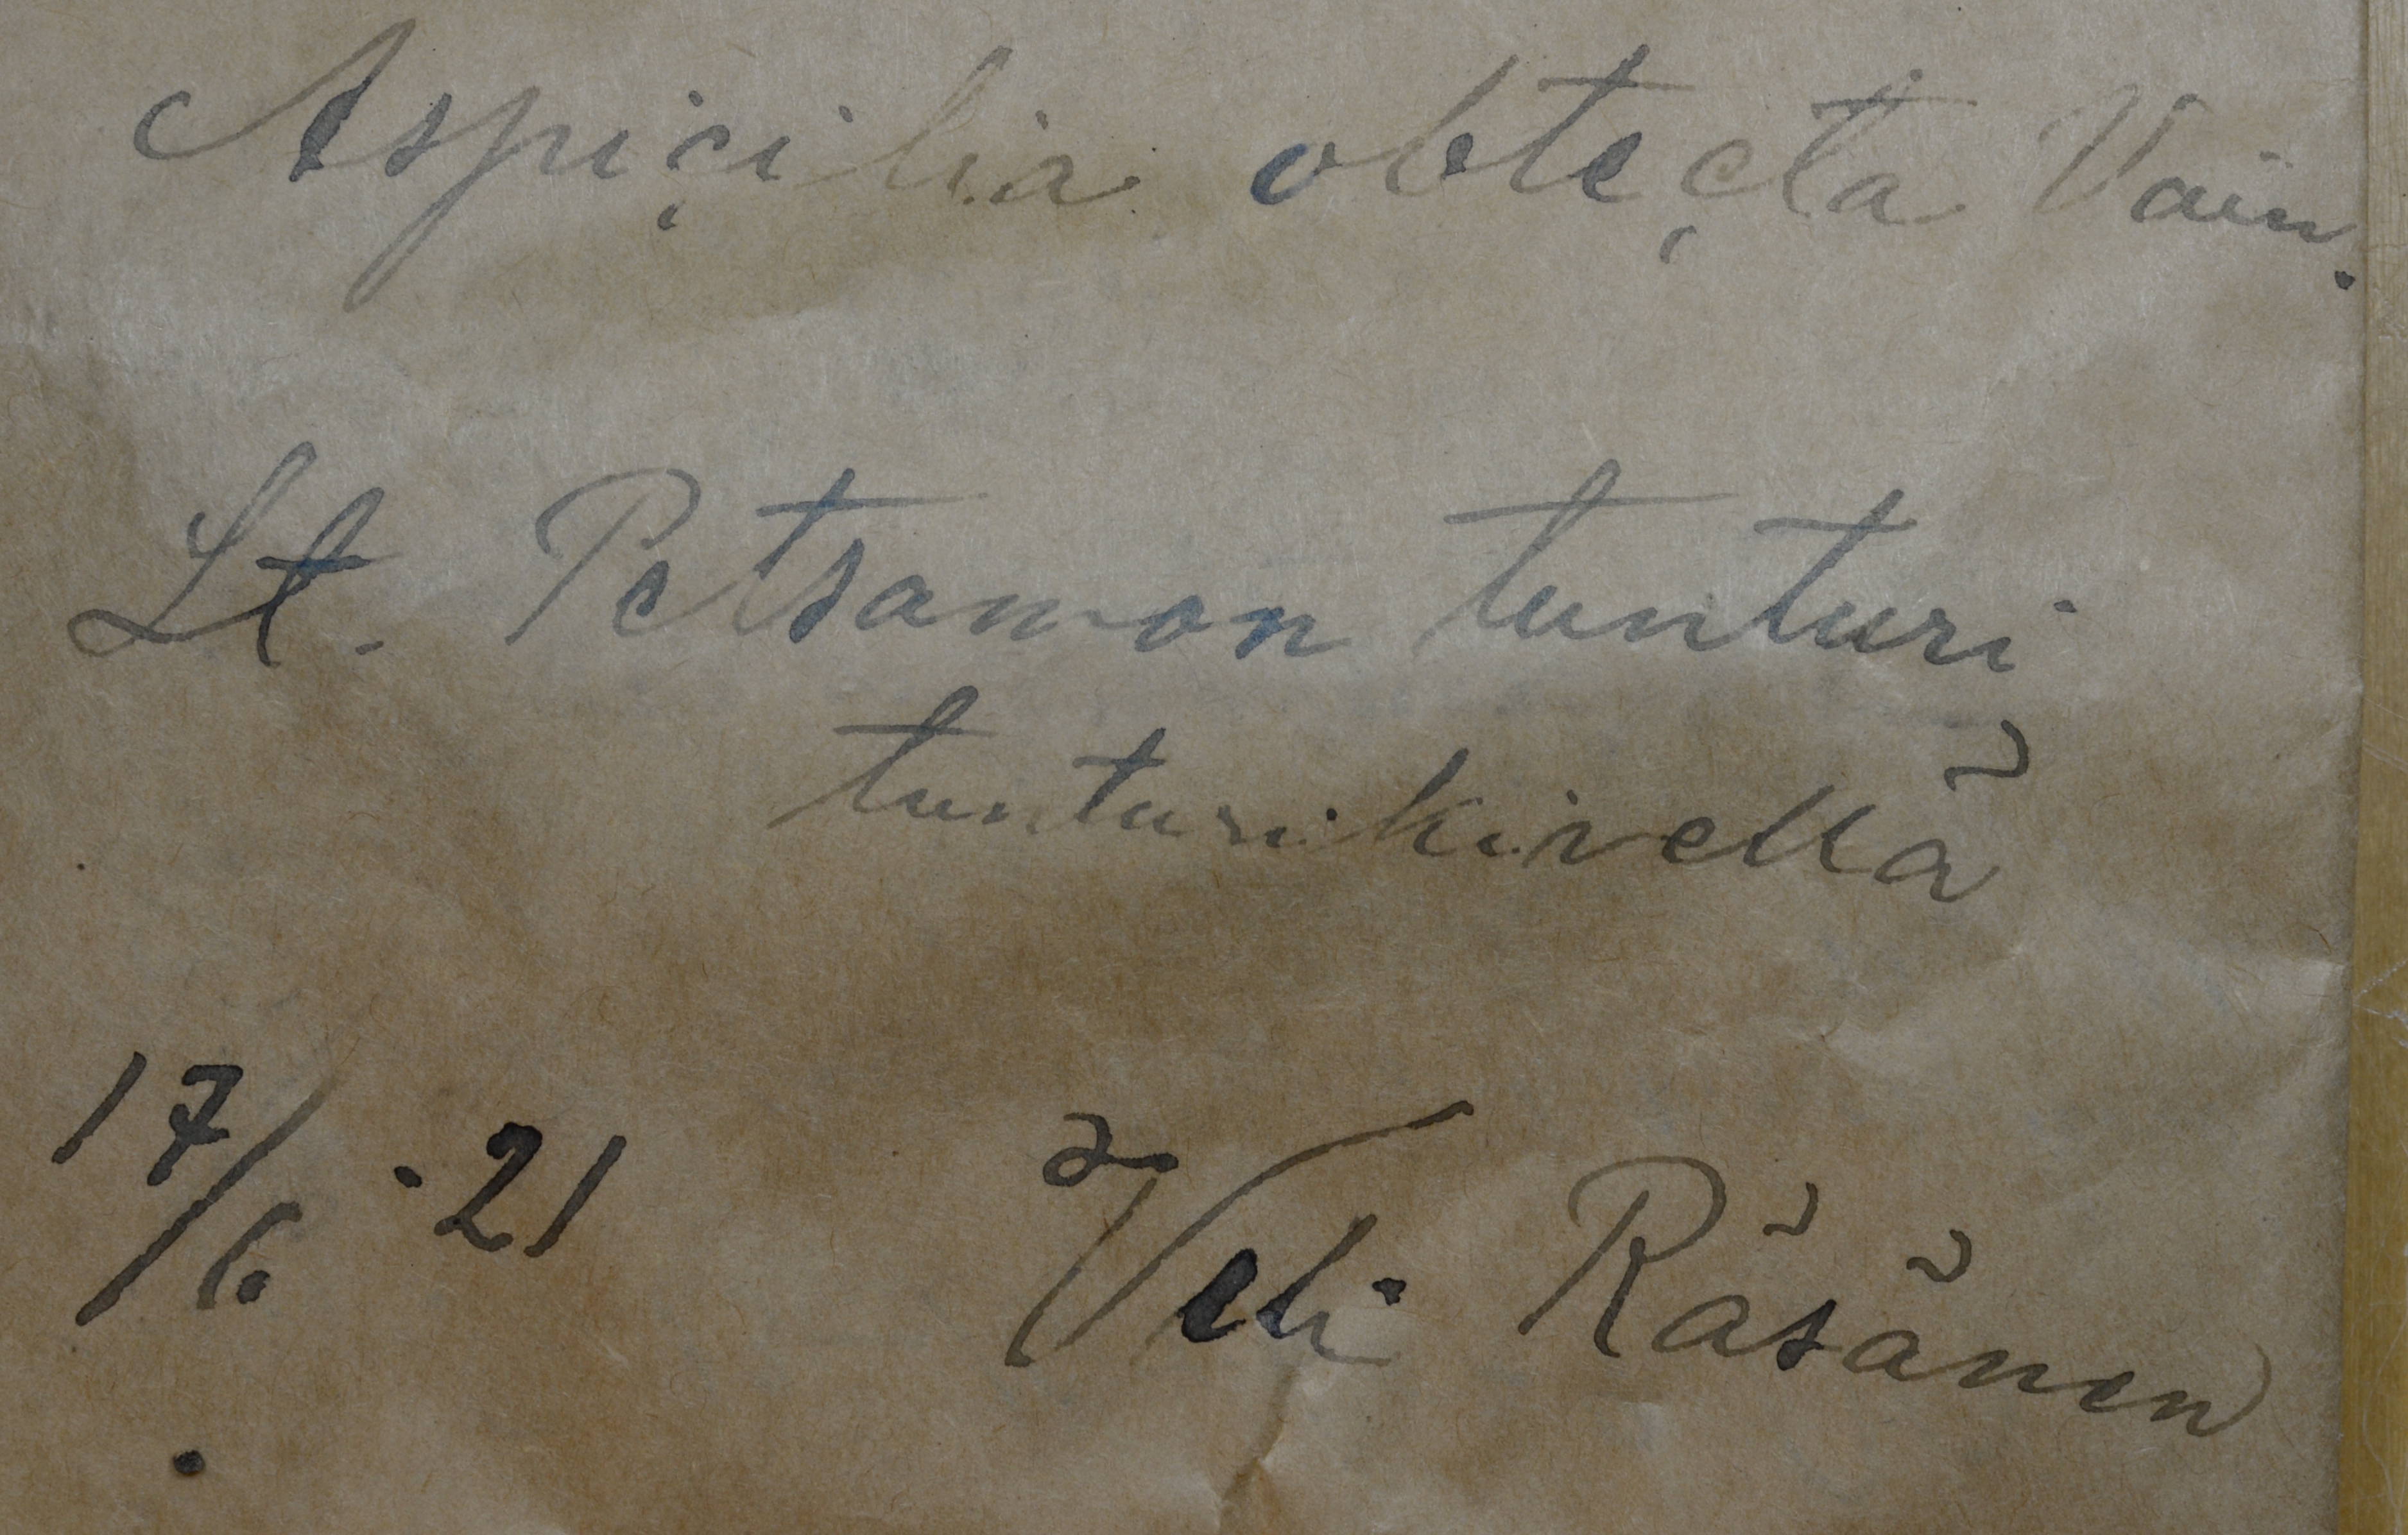 Aspicilia obtecta Vain.
Lt. Petsamon tunturi
tunturikivellä
17/6. -21 Veli Räsänen